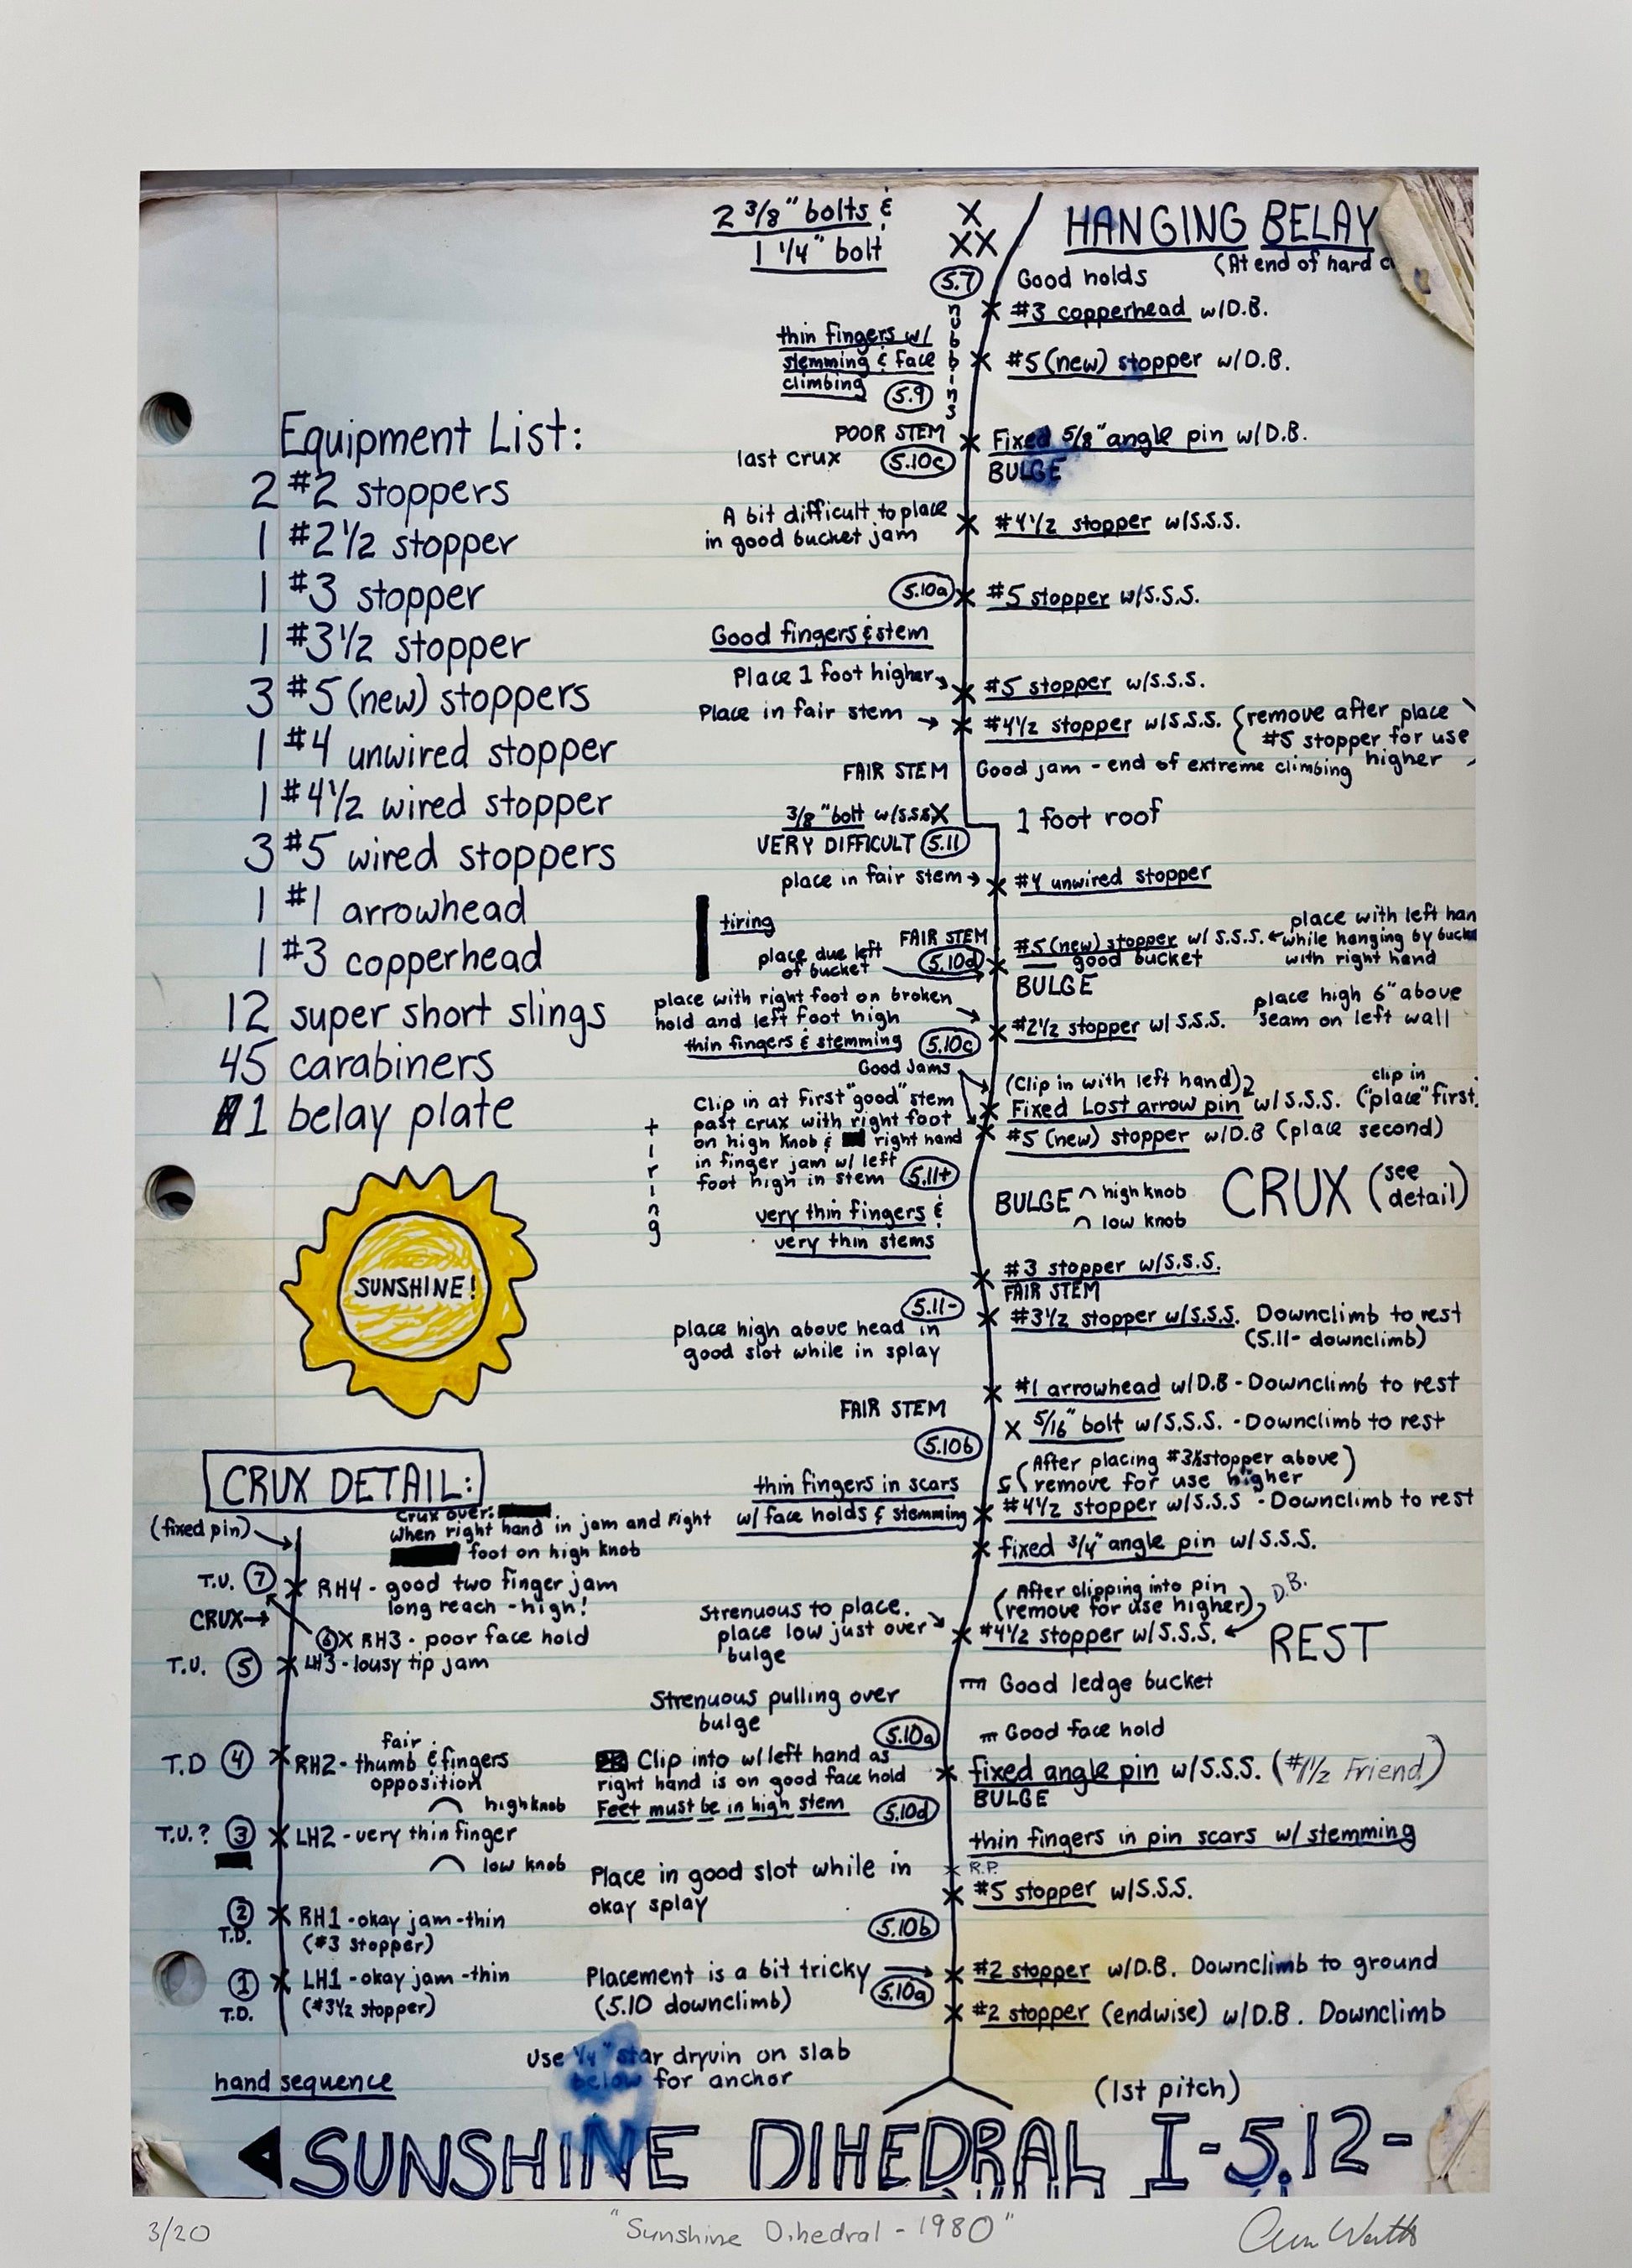 2 3/8" bolts &
1 1/4" bolt
X
XX
HANGING BELAY
(At end of hard
5.7
Good holds
#3 copperhead w/D.B.
nubbins
thin fingers w/
stemming & face
climbing
5.9
#5 (new) stopper w/D.B.
POOR STEM
last crux
5.10c
Fixed 5/8" angle pin w/D.B.
BULGE
A bit difficult to place
in good bucket jam
#4 1/2 stopper w/S.S.S.
5.10a
#5 stopper w/S.S.S.
Good fingers & stem
Place 1 foot higher
#5 stopper w/S.S.S.
Place in fair stem →
#4 1/2 stopper w/S.S.S. {remove after place
#5 stopper for use
higher
FAIR STEM
Good jam - end of extreme climbing
3/8" bolt w/S.S.S X
1 foot roof
VERY DIFFICULT 5.11
place in fair stem →
#4 unwired stopper
tiring
FAIR STEM
5.10d
place due left
of bucket
#5 (new) stopper w/ S.S.S.
good bucket
place with left han
← while hanging by buck
with right hand
BULGE
place with right foot on broken
hold and left foot high
thin fingers & stemming
5.10c
#2 1/2 stopper w/ S.S.S.
place high 6" above
seam on left wall
Good Jams
(Clip in with left hand)
Fixed Lost arrow pin w/S.S.S.
clip in
("place" first
#5 (new) stopper w/D.B (place second)
Clip in at first "good" stem
past crux with right foot
on high knob & right hand
in finger jam w/ left
foot high in stem
5.11+
tiring
very thin fingers &
very thin stems
BULGE ⌒ high knob
⌒ low knob
CRUX (see
detail)
#3 stopper w/S.S.S.
FAIR STEM
5.11-
#3 1/2 stopper w/S.S.S. Downclimb to rest
(5.11- downclimb)
place high above head in
good slot while in splay
#1 arrowhead w/D.B - Downclimb to rest
FAIR STEM
X 5/16" bolt w/S.S.S. - Downclimb to rest
5.10b
(After placing #3 1/2 stopper above)
remove for use higher
thin fingers in scars
w/ face holds & stemming
#4 1/2 stopper w/S.S.S - Downclimb to rest
fixed 3/4" angle pin w/S.S.S.
(After clipping into pin
remove for use higher)
D.B.
Strenuous to place.
place low just over
bulge
#4 1/2 stopper w/S.S.S.
REST
Good ledge bucket
Strenuous pulling over
bulge
5.10a
Good face hold
Clip into w/left hand as
right hand is on good face hold
Feet must be in high stem
5.10d
fixed angle pin w/S.S.S. (#1 1/2 Friend)
BULGE
thin fingers in pin scars w/ stemming
R.P.
Place in good slot while in
okay splay
#5 stopper w/S.S.S.
5.10b
Placement is a bit tricky →
(5.10 downclimb)
5.10a
#2 stopper w/D.B. Downclimb to ground
#2 stopper (endwise) w/D.B. Downclimb
Use 1/4" star dryvin on slab
below for anchor
(1st pitch)
Equipment List:
2 #2 stoppers
1 #2 1/2 stopper
1 #3 stopper
1 #3 1/2 stopper
3 #5 (new) stoppers
1 #4 unwired stopper
1 #4 1/2 wired stopper
3 #5 wired stoppers
1 #1 arrowhead
1 #3 copperhead
12 super short slings
45 carabiners
1 belay plate
SUNSHINE!
CRUX DETAIL:
Crux over:
when right hand in jam and right
foot on high knob
(fixed pin)
T.U. 7 RH4 - good two finger jam
long reach - high!
CRUX →
6 X RH3 - poor face hold
T.U. 5 LH3 - lousy tip jam
T.D 4 RH2 - fair
thumb & fingers
opposition
⌒ high knob
T.U.? 3 LH2 - very thin finger
⌒ low knob
2 RH1 - okay jam - thin
T.D. (#3 stopper)
1 LH1 - okay jam - thin
T.D. (#3 1/2 stopper)
hand sequence
SUNSHINE DIHEDRAL I-5.12-
3/20
"Sunshine Dihedral - 1980"